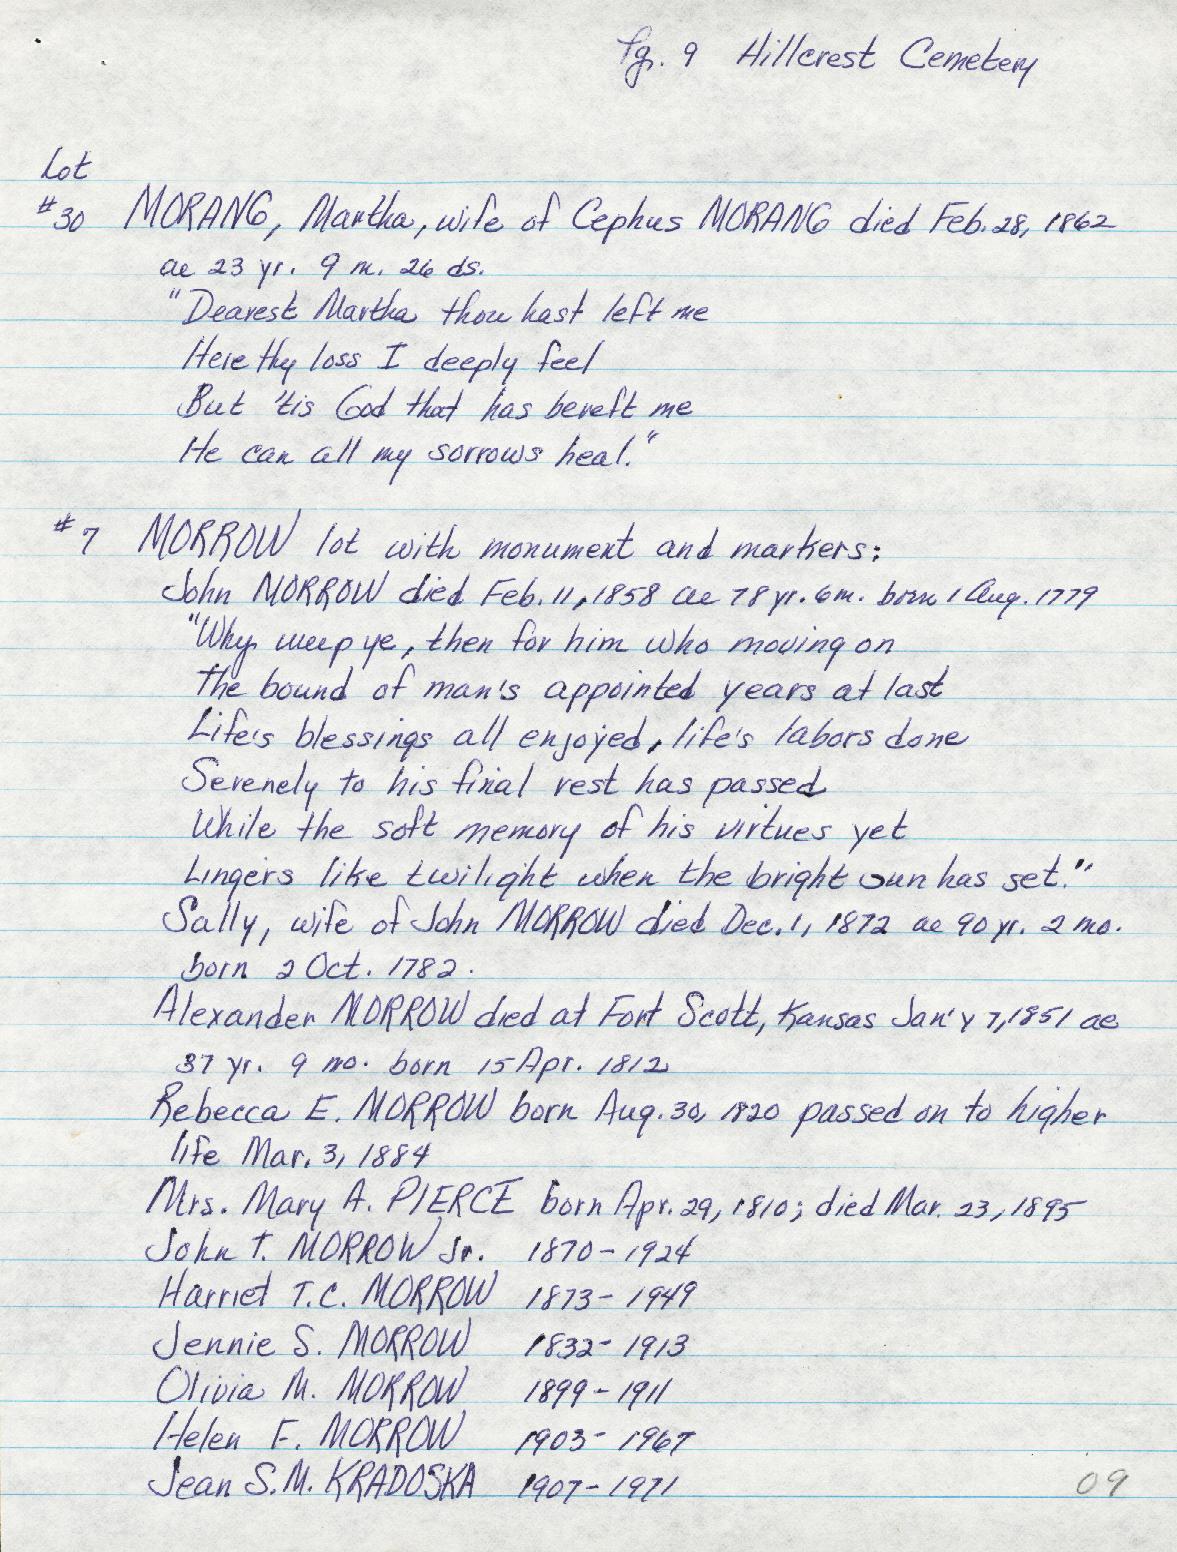 Pg. 9 Hillcrest Cemetery
Lot
#30 MORANG, Martha, wife of Cephus MORANG died Feb. 28, 1862
ae 23 yr. 9 m. 26 ds.
"Dearest Martha thou hast left me
Here thy loss I deeply feel
But 'tis God that has bereft me
He can all my sorrows heal."
#7 MORROW lot with monument and markers:
John MORROW died Feb. 11, 1858 ae 78 yr. 6 m. born 1 Aug. 1779
"Why weep ye, then for him who moving on
The bound of man's appointed years at last
Life's blessings all enjoyed, life's labors done
Serenely to his final rest has passed
While the soft memory of his virtues yet
Lingers like twilight when the bright sun has set."
Sally, wife of John MORROW died Dec. 1, 1872 ae 90 yr. 2 mo.
born 2 Oct. 1782.
Alexander MORROW died at Fort Scott, Kansas Jan'y 7, 1851 ae
37 yr. 9 mo. born 15 Apr. 1812
Rebecca E. MORROW born Aug. 30, 1820 passed on to higher
life Mar. 3, 1884
Mrs. Mary A. PIERCE born Apr. 29, 1810; died Mar. 23, 1895
John T. MORROW Jr. 1870-1924
Harriet T.C. MORROW 1873-1949
Jennie S. MORROW 1832-1913
Olivia M. MORROW 1899-1911
Helen F. MORROW 1903-1967
Jean S.M. KRADOSKA 1907-1971
09